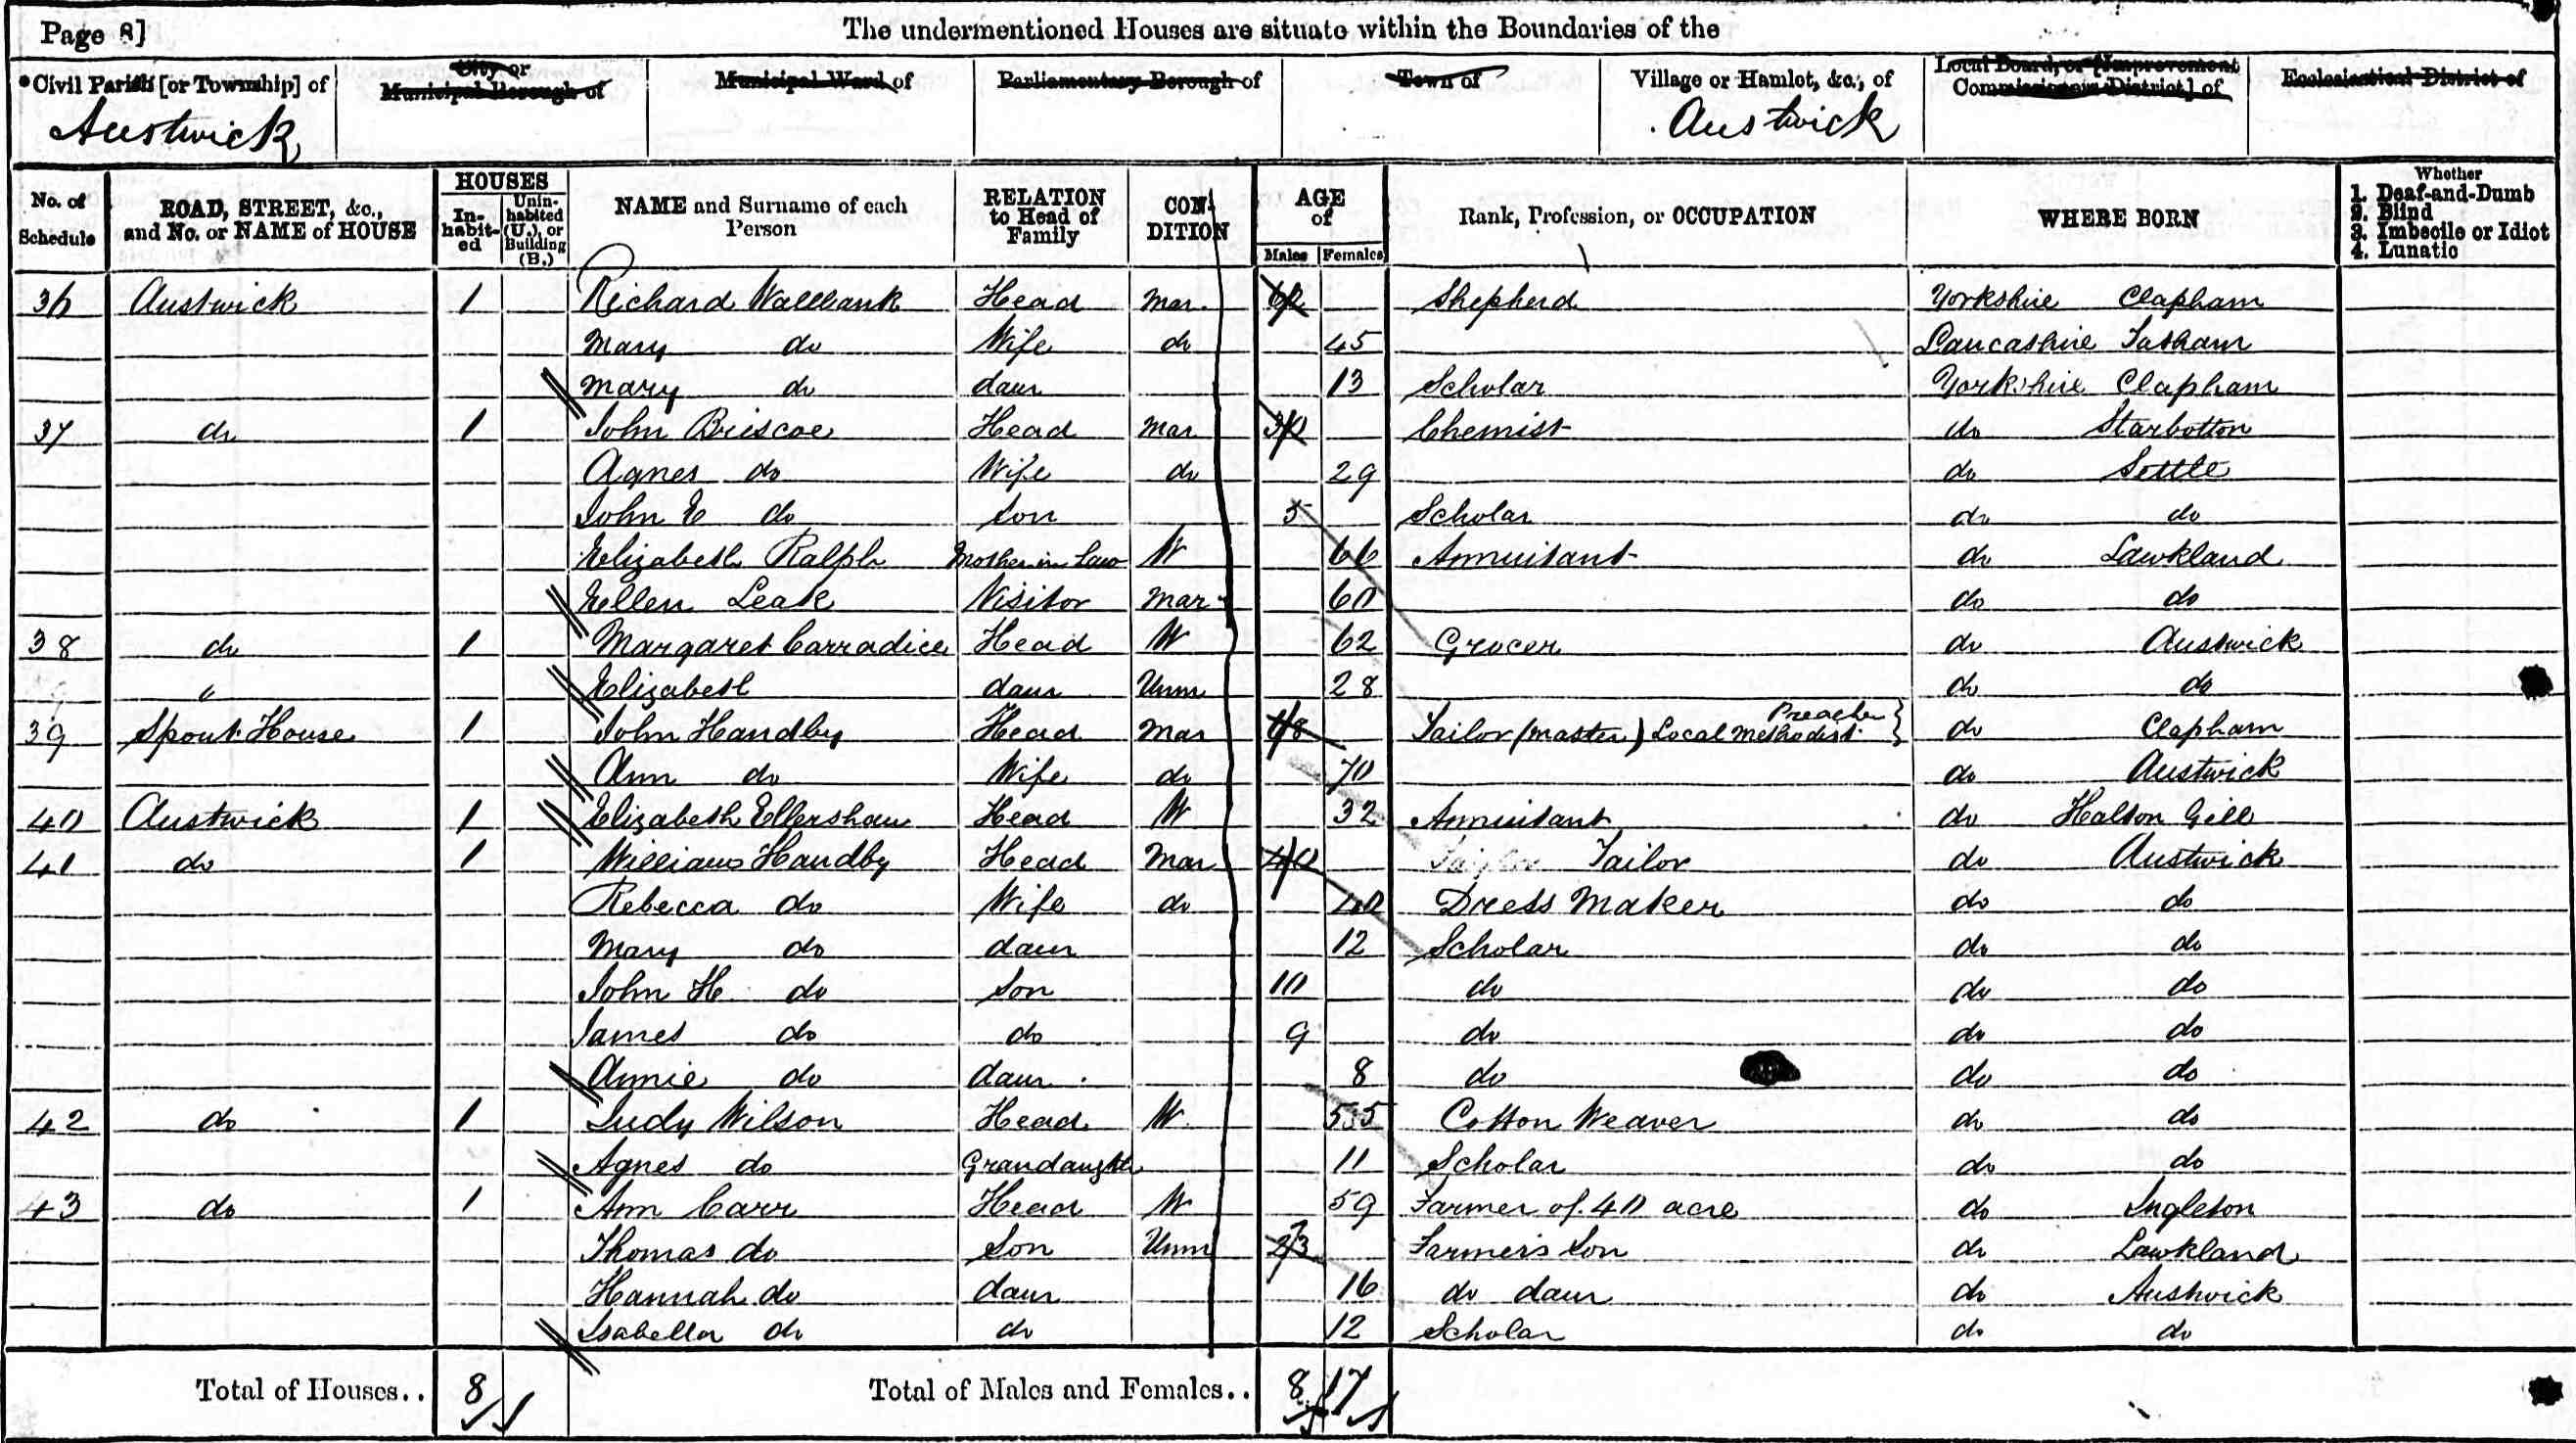 Page 8]
The undermentioned Houses are situate within the Boundaries of the
Civil Parish [or Township] of
City or Municipal Borough of
Municipal Ward of
Parliamentary Borough of
Town of
Village or Hamlet, &c., of
Local Board, or [Improvement Commissioners District] of
Ecclesiastical District of
Austwick
Austwick
No. of Schedule
ROAD, STREET, &c., and No. or NAME of HOUSE
HOUSES
In-habit-ed
Unin-habited (U.), or Building (B.)
NAME and Surname of each Person
RELATION to Head of Family
CON-DITION
AGE of
Males
Females
Rank, Profession, or OCCUPATION
WHERE BORN
Whether
1. Deaf-and-Dumb
2. Blind
3. Imbecile or Idiot
4. Lunatic
36 Austwick 1 Richard Wallbank Head Mar. 62 Shepherd Yorkshire Clapham
Mary do Wife do 45 Lancashire Tatham
Mary do daur 13 Scholar Yorkshire Clapham
37 do 1 John Briscoe Head Mar 30 Chemist do Starbotton
Agnes do Wife do 29 do Settle
John E do Son 5 Scholar do do
Elizabeth Ralph Mother in Law W 66 Annuitant do Lawkland
Ellen Leak Visitor Mar 60 do do
38 do 1 Margaret Carradice Head W 62 Grocer do Austwick
" Elizabeth daur Unm 28 do do
39 Spout House 1 John Handby Head Mar 68 Tailor (master) Local Methodist Preacher } do Clapham
Ann do Wife do 70 do Austwick
40 Austwick 1 Elizabeth Ellershaw Head W 32 Annuitant do Halton Gill
41 do 1 William Handby Head Mar 40 Tailor do Austwick
Rebecca do Wife do 40 Dress Maker do do
Mary do daur 12 Scholar do do
John H do Son 10 do do do
James do do 9 do do do
Annie do daur. 8 do do do
42 do 1 Judy Wilson Head W. 55 Cotton Weaver do do
Agnes do Grandaughtr 11 Scholar do do
43 do 1 Ann Carr Head W 59 Farmer of 40 acre do Ingleton
Thomas do Son Unm 23 Farmers Son do Lawkland
Hannah do daur 16 do daur do Austwick
Isabella do do 12 Scholar do do
Total of Houses.. 8
Total of Males and Females.. 8 17